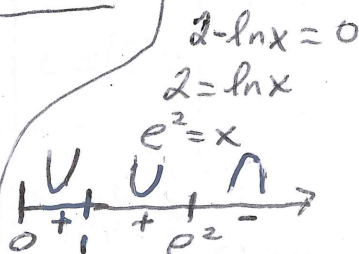 2-lnx = 0
2 = lnx
e² = x
∪ ∪ ∩
+ + -
0 1 e²